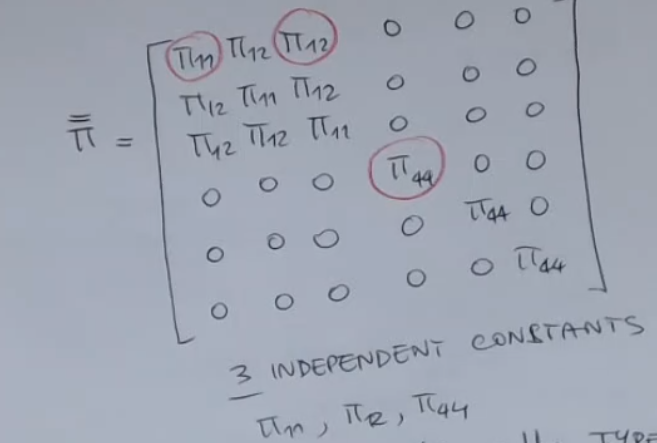 Π11 Π12 Π12 0 0 0
Π12 Π11 Π12 0 0 0
Π̿ = Π12 Π12 Π11 0 0 0
0 0 0 Π44 0 0
0 0 0 0 Π44 0
0 0 0 0 0 Π44
3 INDEPENDENT CONSTANTS
Π11, Π12, Π44
TYPE